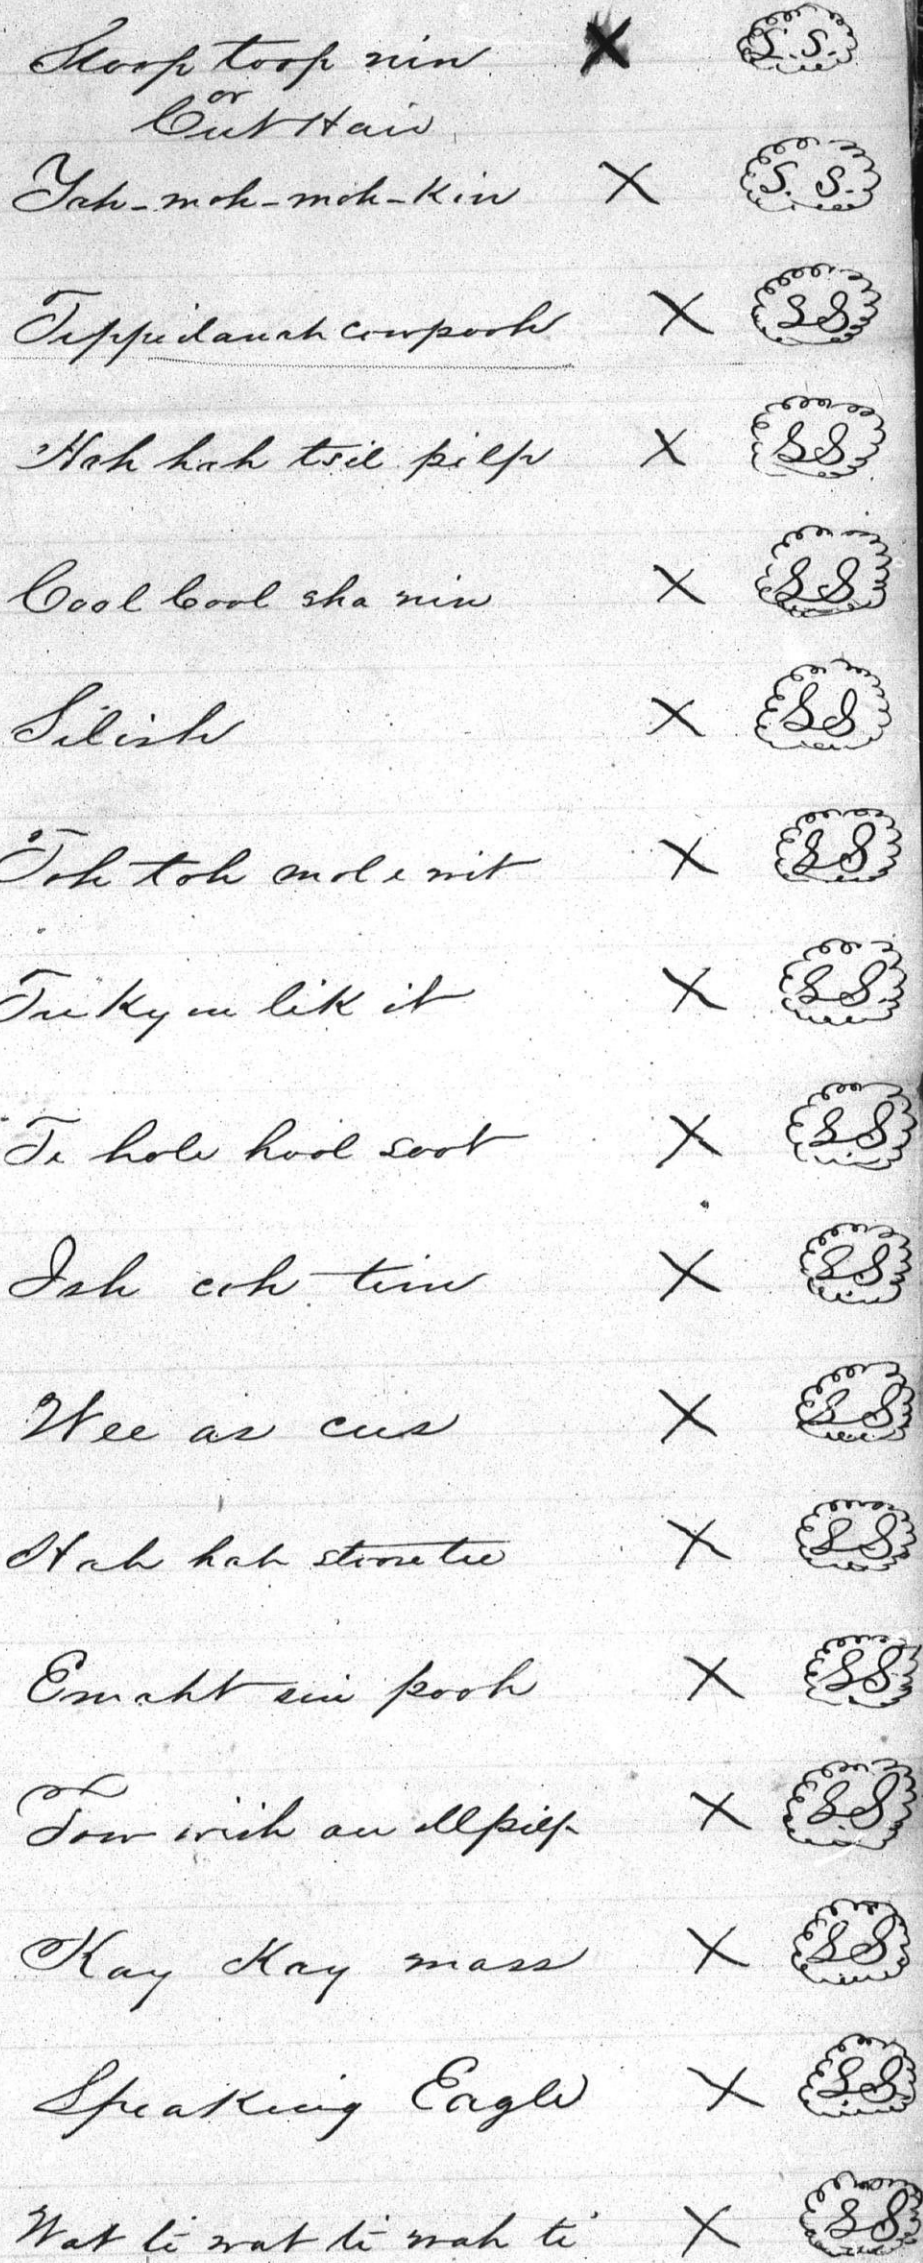 Stoop toop nin X S. S.
or
Cut Hair
Yah-moh-moh-kin X S. S.
Tippelanah cowpooh X S S
Hah hah tsil pilp X S S
Cool Cool sha nin X S S
Silish X S S
Toh toh mol e wit X S S
Tuky in lik it X S S
Te hole hool soot X S S
Ish coh tim X S S
Wee as cus X S S
Hah hah stoore tee X S S
Emaht sin pooh X S S
Tow wish au il pilp X S S
Kay Kay mass X S S
Speaking Eagle X S S
Wat ti wat ti wah ti X S S